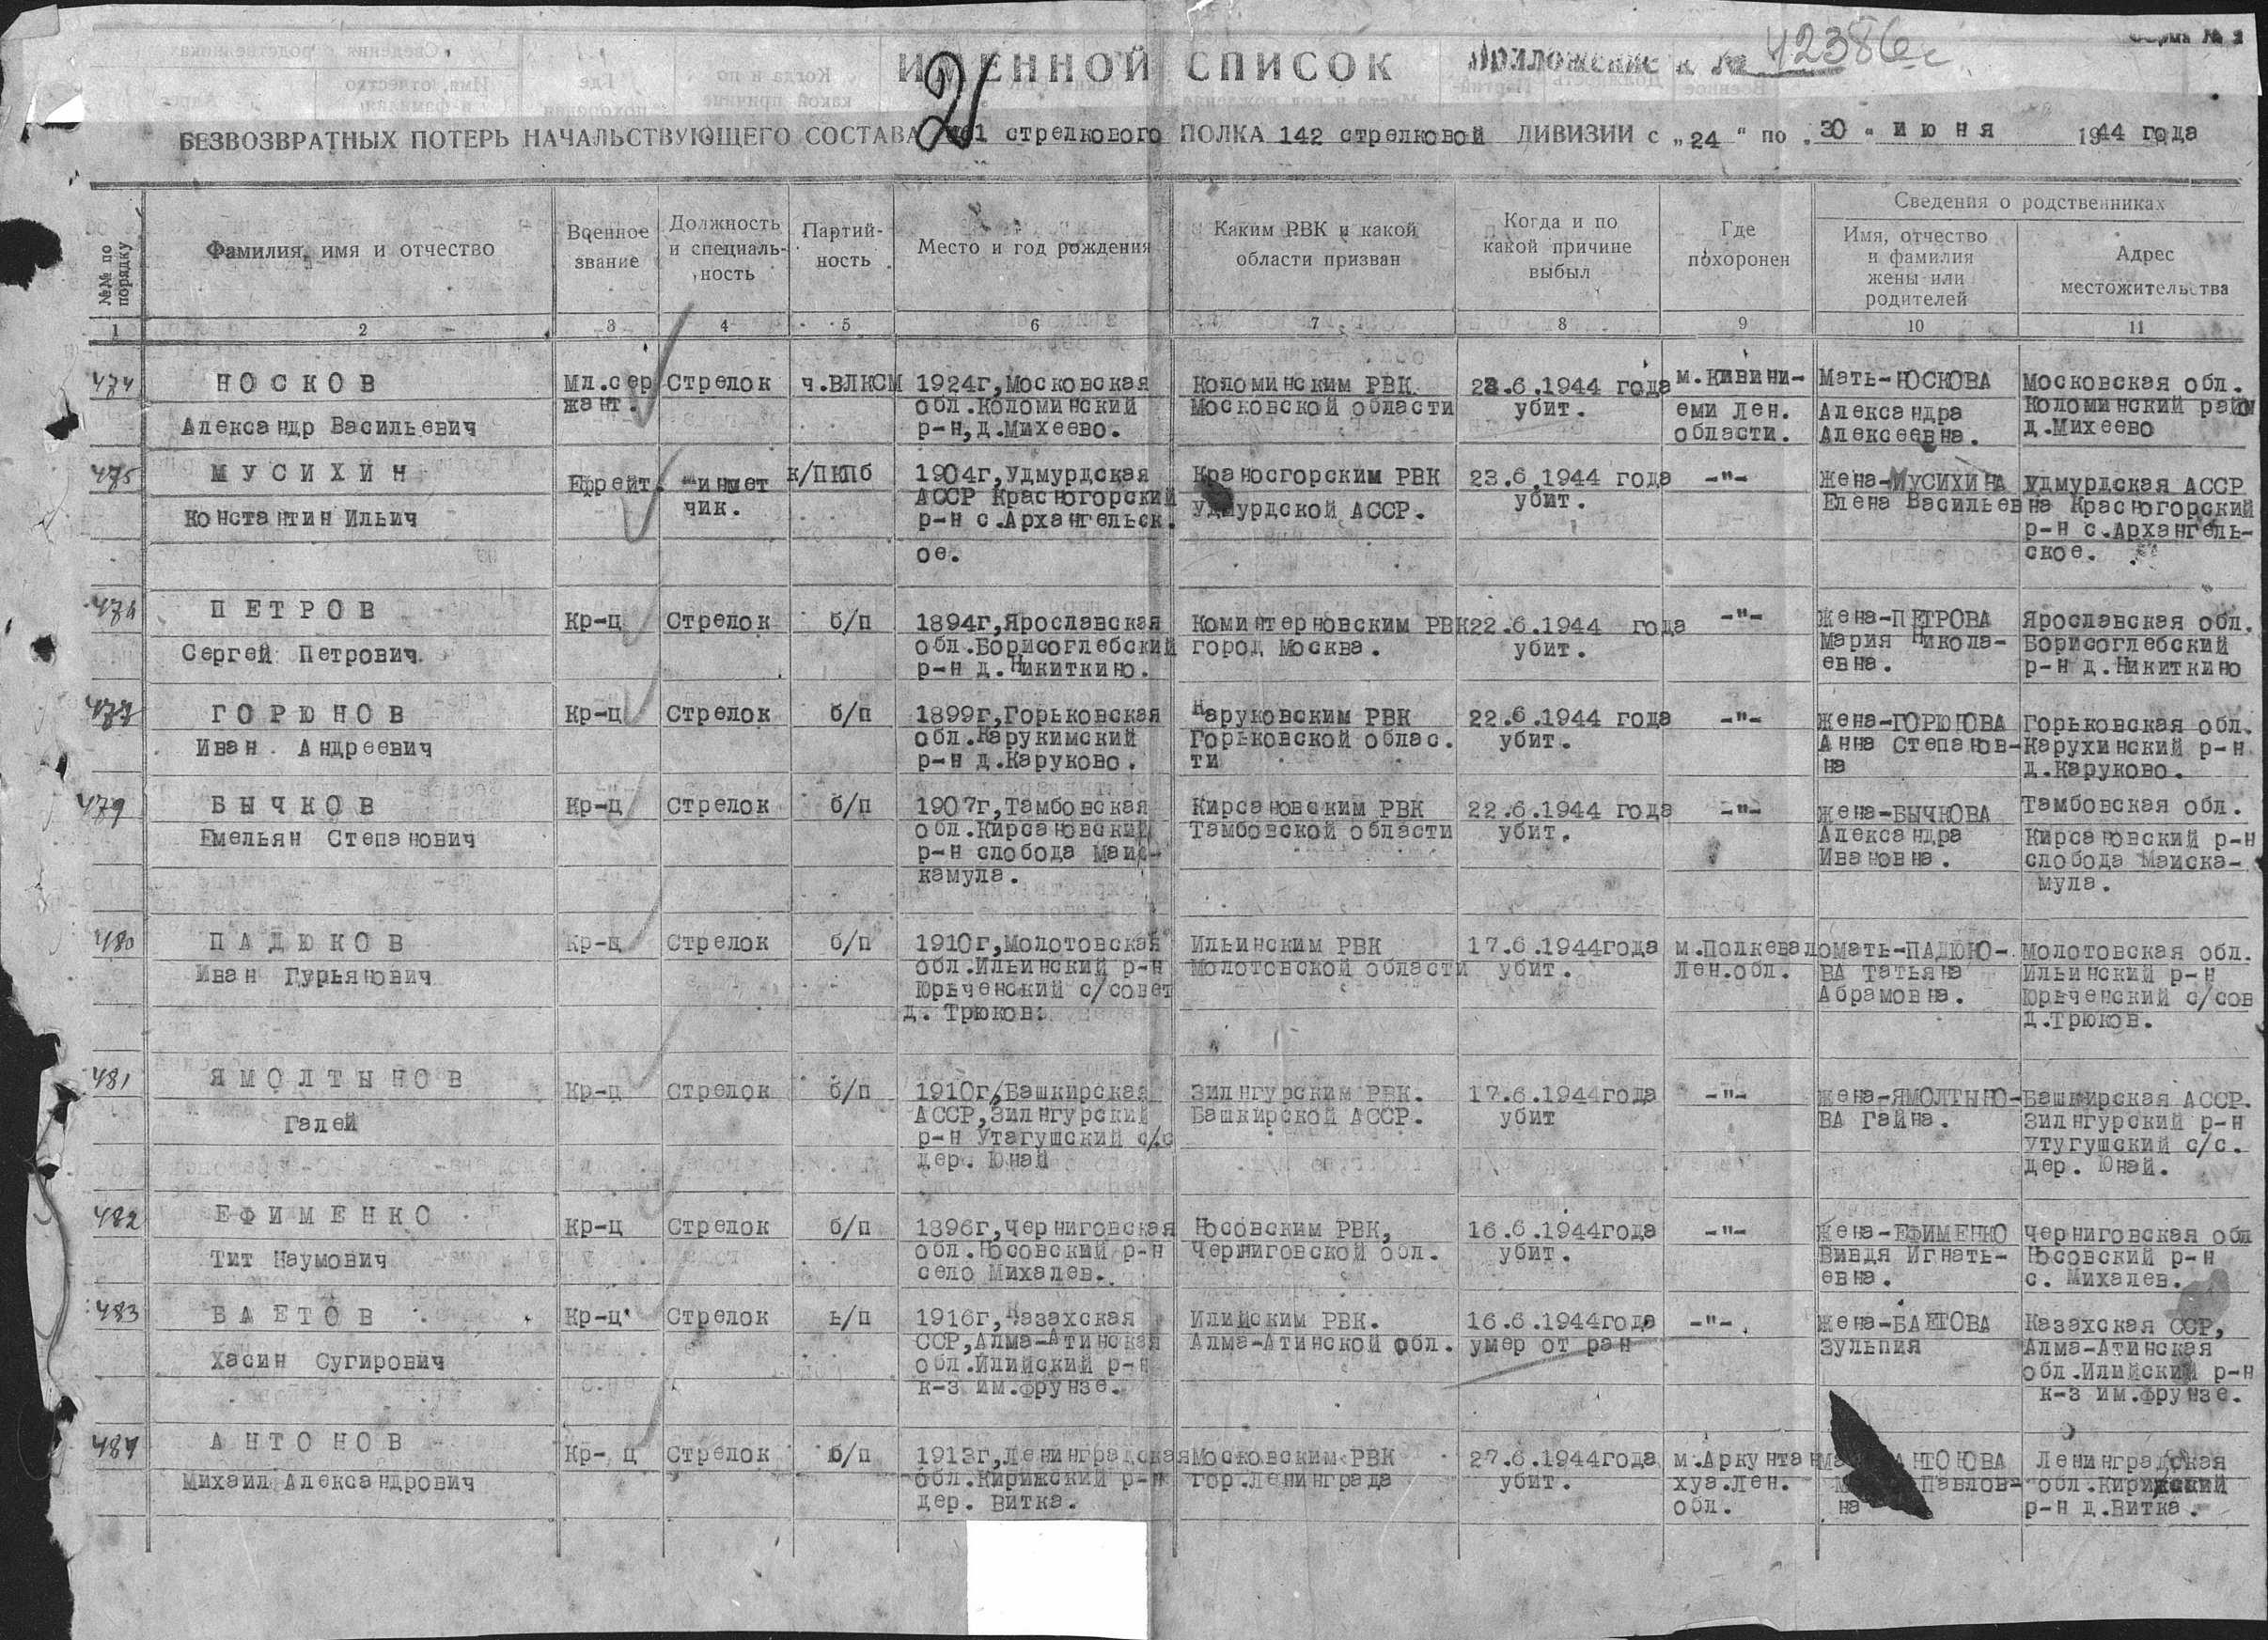 ИМЕННОЙ СПИСОК Приложение к № 42386с
Форма № 2
21
БЕЗВОЗВРАТНЫХ ПОТЕРЬ НАЧАЛЬСТВУЮЩЕГО СОСТАВА стрелкового ПОЛКА 142 стрелковой ДИВИЗИИ с „24“ по „30“ июня 1944 года
№№ по порядку
Фамилия, имя и отчество
Военное звание
Должность и специаль-ность
Партий-ность
Место и год рождения
Каким РВК и какой области призван
Когда и по какой причине выбыл
Где похоронен
Сведения о родственниках
Имя, отчество и фамилия жены или родителей
Адрес местожительства
1 2 3 4 5 6 7 8 9 10 11
474 НОСКОВ Мл.сер Стрелок ч.ВЛКСМ 1924г,Московская Коломинским РВК 23.6.1944 года м.Кивини- Мать-НОСКОВА Московская обл.
жант. обл.Коломинский Московской области убит. еми Лен. Александра Коломинский райо
Александр Васильевич р-н,д.Михеево. области. Алексеевна. д.Михеево
475 МУСИХИН Ефрейт. к/ПКПб 1904г,Удмурдская Краносгорским РВК 23.6.1944 года -"- Жена-МУСИХИНА Удмурдская АССР
чик. АССР Красногорский Удмурдской АССР. убит. Елена Васильевна Красногорский
Константин Ильич р-н с.Архангельск. р-н с.Архангель-
ое. ское.
476 ПЕТРОВ Кр-ц Стрелок б/п 1894г,Ярославская Коминтерновским РВК 22.6.1944 года -"- Жена-ПЕТРОВА Ярославская обл.
Сергей Петрович обл.Борисоглебский город Москва. убит. Мария Никола- Борисоглебский
р-н д.Никиткино. евна. р-н д.Никиткино
477 ГОРЮНОВ Кр-ц Стрелок б/п 1899г,Горьковская Наруковским РВК 22.6.1944 года -"- Жена-ГОРЮНОВА Горьковская обл.
Иван Андреевич обл.Карукимский Горьковской облас. убит. Анна Степанов- Карухинский р-н
р-н д.Каруково. ти на д.Каруково.
479 БЫЧКОВ Кр-ц Стрелок б/п 1907г,Тамбовская Кирсановским РВК 22.6.1944 года -"- Жена-БЫЧКОВА Тамбовская обл.
Емельян Степанович обл.Кирсановский Тамбовской области убит. Александра Кирсановский р-н
р-н слобода Маис- Ивановна. слобода Маиска-
камула. мула.
480 ПАДЮКОВ Кр-ц Стрелок б/п 1910г,Молотовская Ильинским РВК 17.6.1944года м.Полкевало мать-ПАДЮКО- Молотовская обл.
Иван Гурьянович обл.Ильинский р-н Молотовской области убит. Лен.обл. ВА Татьяна Ильинский р-н
Юрьченский с/совет Абрамовна. Юрьченский с/сов
д. Трюков. д.Трюков.
481 ЯМОЛТЫНОВ Кр-ц Стрелок б/п 1910г,Башкирская Зилнгурским РВК. 17.6.1944года -"- Жена-ЯМОЛТЫНО- Башкирская АССР.
Галей АССР,Зилнгурский Башкирской АССР. убит ВА Гайна. Зилнгурский р-н
р-н Утагушский с/с Утугушский с/с.
дер. Юнай дер. Юнай.
482 ЕФИМЕНКО Кр-ц Стрелок б/п 1896г,Черниговская Носовским РВК, 16.6.1944года -"- Жена-ЕФИМЕНКО Черниговская обл
Тит Наумович обл.Носовский р-н Черниговской обл. убит. Вивдя Игнать- Носовский р-н
село Михалев. евна. с. Михалев.
483 БАЕТОВ Кр-ц Стрелок б/п 1916г,Казахская Илийским РВК. 16.6.1944года -"- Жена-БАЕТОВА Казахская ССР,
Хасин Сугирович ССР,Алма-Атинская Алма-Атинской обл. умер от ран Зульпия Алма-Атинская
обл.Илийский р-н обл.Илийский р-н
к-з им.Фрунзе. к-з им.Фрунзе.
484 АНТОНОВ Кр- ц Стрелок б/п 1913г,Ленинградская Московским РВК 27.6.1944года м.Аркунтан АНТОНОВА Ленинградская
Михаил Александрович обл.Киришский р-н гор.Ленинграда убит. хуа.Лен. Павлов- обл.Киришский
дер. Витка. обл. на р-н д.Витка.